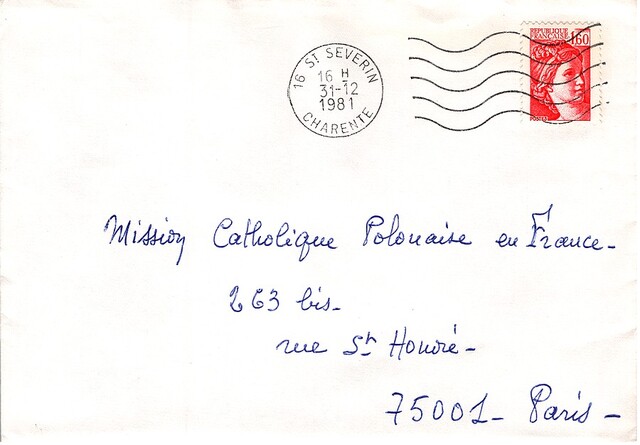 16 ST SEVERIN
16 H
31-12
1981
CHARENTE
REPUBLIQUE
FRANCAISE 1,60
POSTES
Mission Catholique Polonaise en France-
263 bis-
rue St Honoré-
75001- Paris-